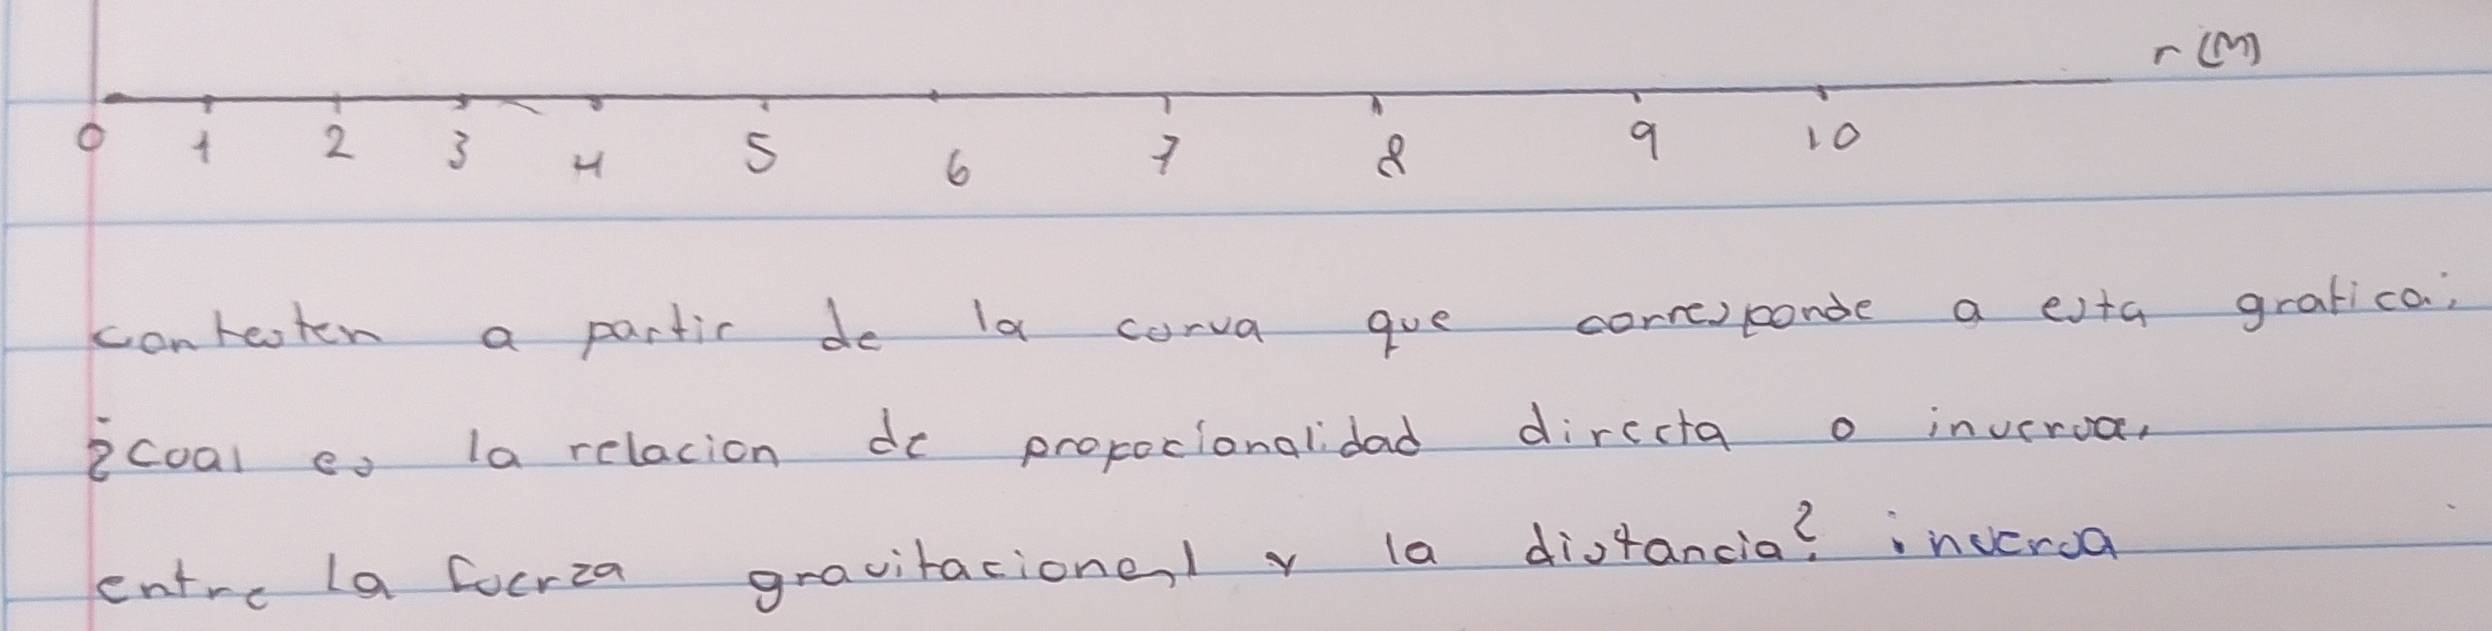 r (m)
0 1 2 3 4 5 6 7 8 9 10
contesten a partir de la curva que corresponde a esta grafica:
¿coal es la relacion de propocionalidad directa o inversa.
entre la fuerza gravitacional y la distancia? inversa